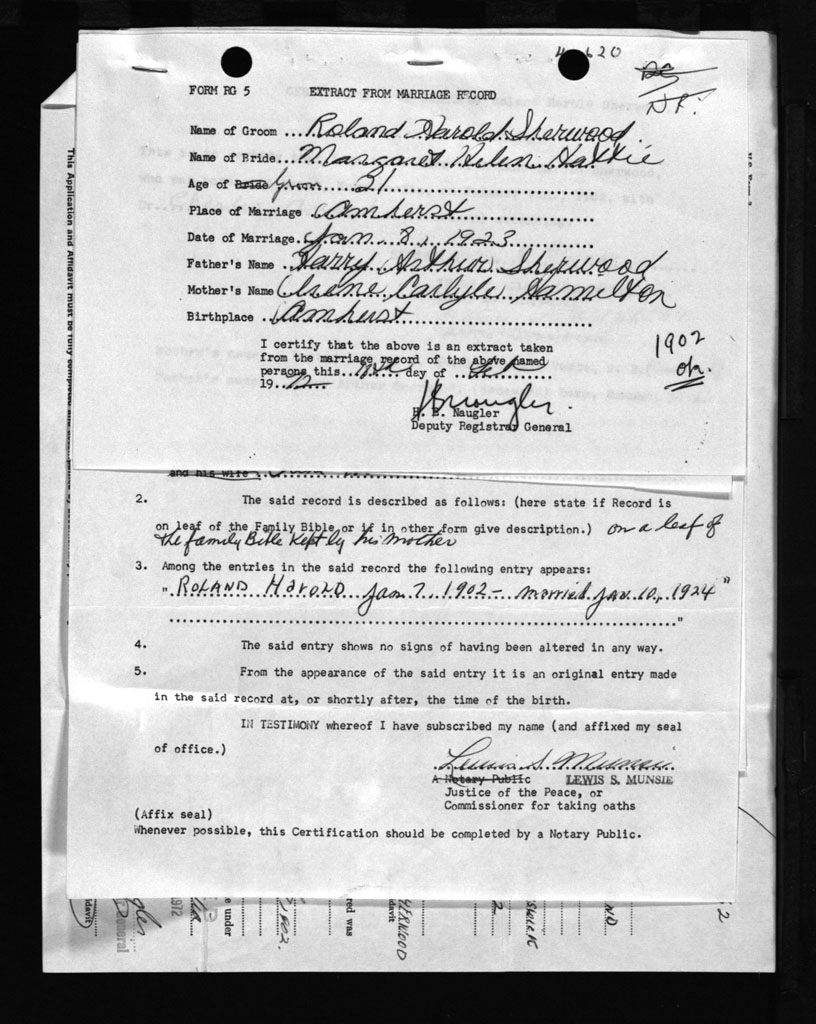 620
N.F.
FORM RG 5 EXTRACT FROM MARRIAGE RECORD
Name of Groom ... Roland Harold Sherwood
Name of Bride ... Margaret Helen Hattie
Age of Bride Groom ..... 21
Place of Marriage Amherst
Date of Marriage. Jan. 8, 1923
Father's Name . Harry Arthur Sherwood
Mother's Name Irene Carlyle Hamilton
Birthplace .. Amherst
I certify that the above is an extract taken
from the marriage record of the above named
persons this day of
19..72
1902
ok.
H. B. Naugler
Deputy Registrar General
and his wife
2. The said record is described as follows: (here state if Record is
on leaf of the Family Bible or if in other form give description.) on a leaf of
the family Bible kept by his mother
3. Among the entries in the said record the following entry appears:
" ROLAND HAROLD Jan. 7, 1902 - married Jan. 10, 1924 "
"
4. The said entry shows no signs of having been altered in any way.
5. From the appearance of the said entry it is an original entry made
in the said record at, or shortly after, the time of the birth.
IN TESTIMONY whereof I have subscribed my name (and affixed my seal
of office.)
Lewis S. Munsie
A Notary Public LEWIS S. MUNSIE
Justice of the Peace, or
Commissioner for taking oaths
(Affix seal)
Whenever possible, this Certification should be completed by a Notary Public.
This Application and Affidavit must be fully completed
davit
General
1972
e under
1902.
red was
davit
HERWOOD
N.D.
2